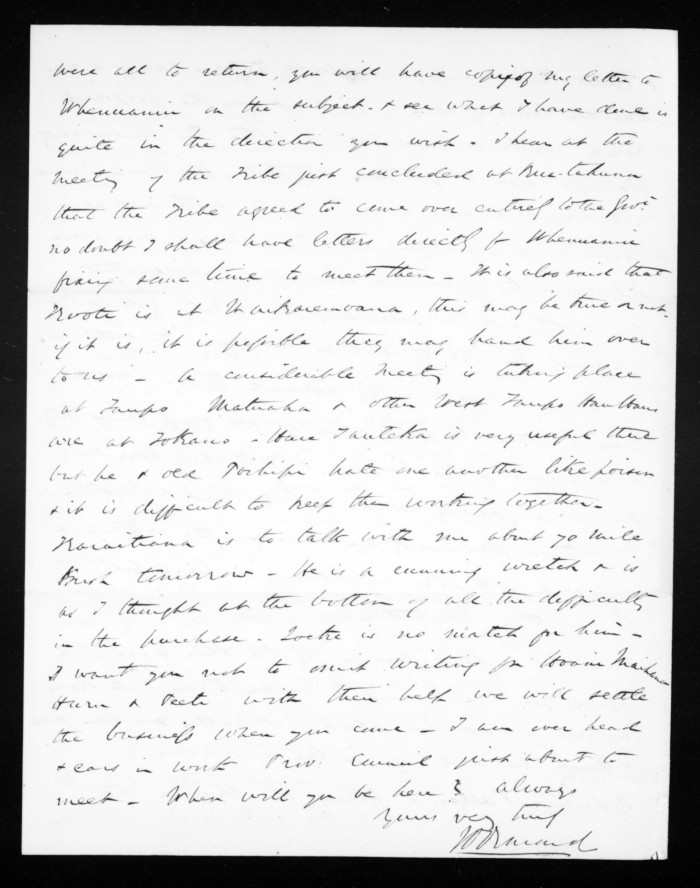 were all to return, you will have copy of my letter to
Whenuanui on the subject. & see what I have done is
quite in the direction you wish - I hear at the
meeting of the Tribe just concluded at Rua-tahuna
that the Tribe agreed to come over entirely to the Govt
no doubt I shall have letters directly fr Whenuanui
fixing some time to meet them - It is also said that
Kooti is at Waikaremoana, this may be true or not.
if it is, it is possible they may hand him over
to us - A considerable meeting is taking place
at Taupo Matuaha & other West Taupo Hau Haus
are at Tokano - Hare Tauteka is very useful there
but he & old Poihipi hate one another like poison
& it is difficult to keep them working together -
Karaitiana is to talk with me about 70 Mile
Bush tomorrow - He is a cunning wretch & is
as I thought at the bottom of all the difficulty
in the purchase - Locke is no match for him -
I want you not to omit writing for Hoani
Huru & Peeti with their help we will settle
the business when you come - I am over head
& ears in work Prov: Council just about to
meet - When will you be here? always
Yours very truly
JD Ormond